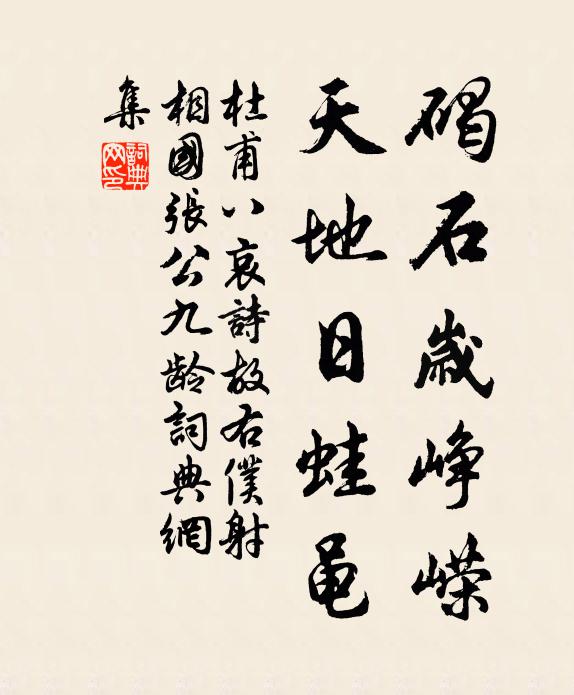 碣石歲峥嶸
天地日蛙黽
杜甫八哀詩故右僕射
相國張公九龄詞典網
集
詞典
网印